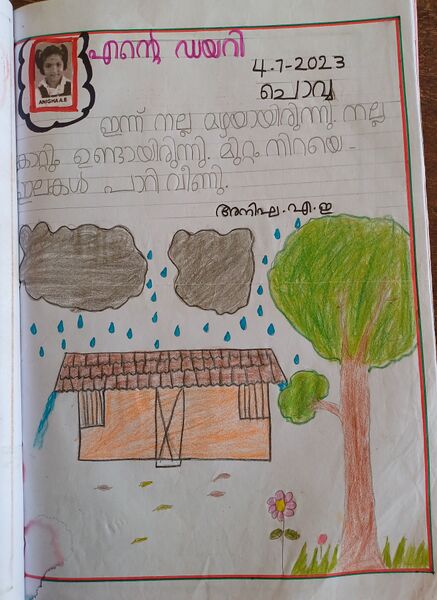 എന്റെ ഡയറി
ANIGHA A.E
4-7-2023
ചൊവ്വ
ഇന്ന് നല്ല മഴയായിരുന്നു. നല്ല
കാറ്റും ഉണ്ടായിരുന്നു. മുറ്റം നിറയെ -
ഇലകൾ പാറി വീണു.
അനിഘ. എ. ഇ